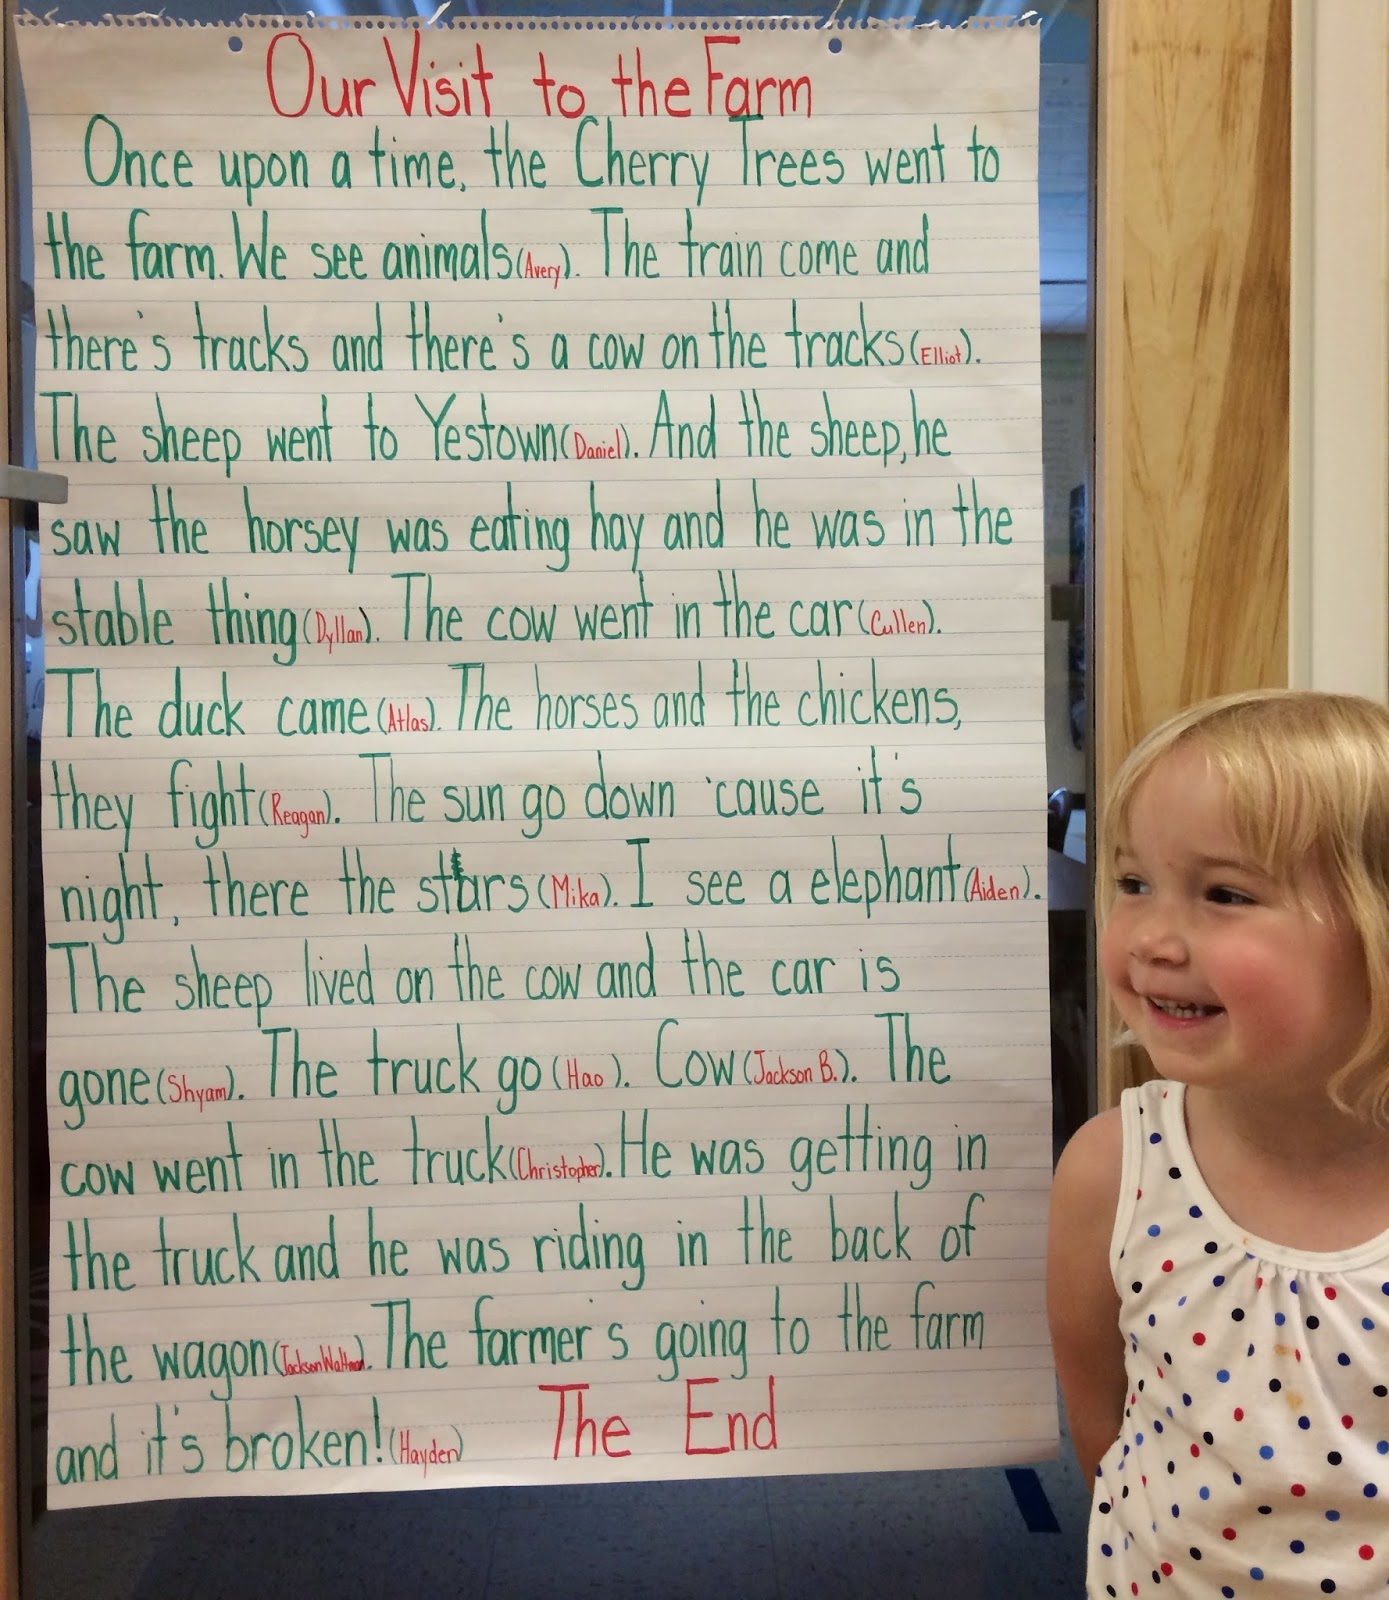 Our Visit to the Farm
Once upon a time, the Cherry Trees went to
the farm. We see animals (Avery). The train come and
there's tracks and there's a cow on the tracks (Elliot).
The sheep went to Yestown (Daniel). And the sheep, he
saw the horsey was eating hay and he was in the
stable thing (Dyllan). The cow went in the car (Cullen).
The duck came (Atlas). The horses and the chickens,
they fight (Reagan). The sun go down 'cause it's
night, there the stars (Mika). I see a elephant (Aiden).
The sheep lived on the cow and the car is
gone (Shyam). The truck go (Hao). Cow (Jackson B.). The
cow went in the truck (Christopher). He was getting in
the truck and he was riding in the back of
the wagon (Jackson). The farmer's going to the farm
and it's broken! (Hayden) The End